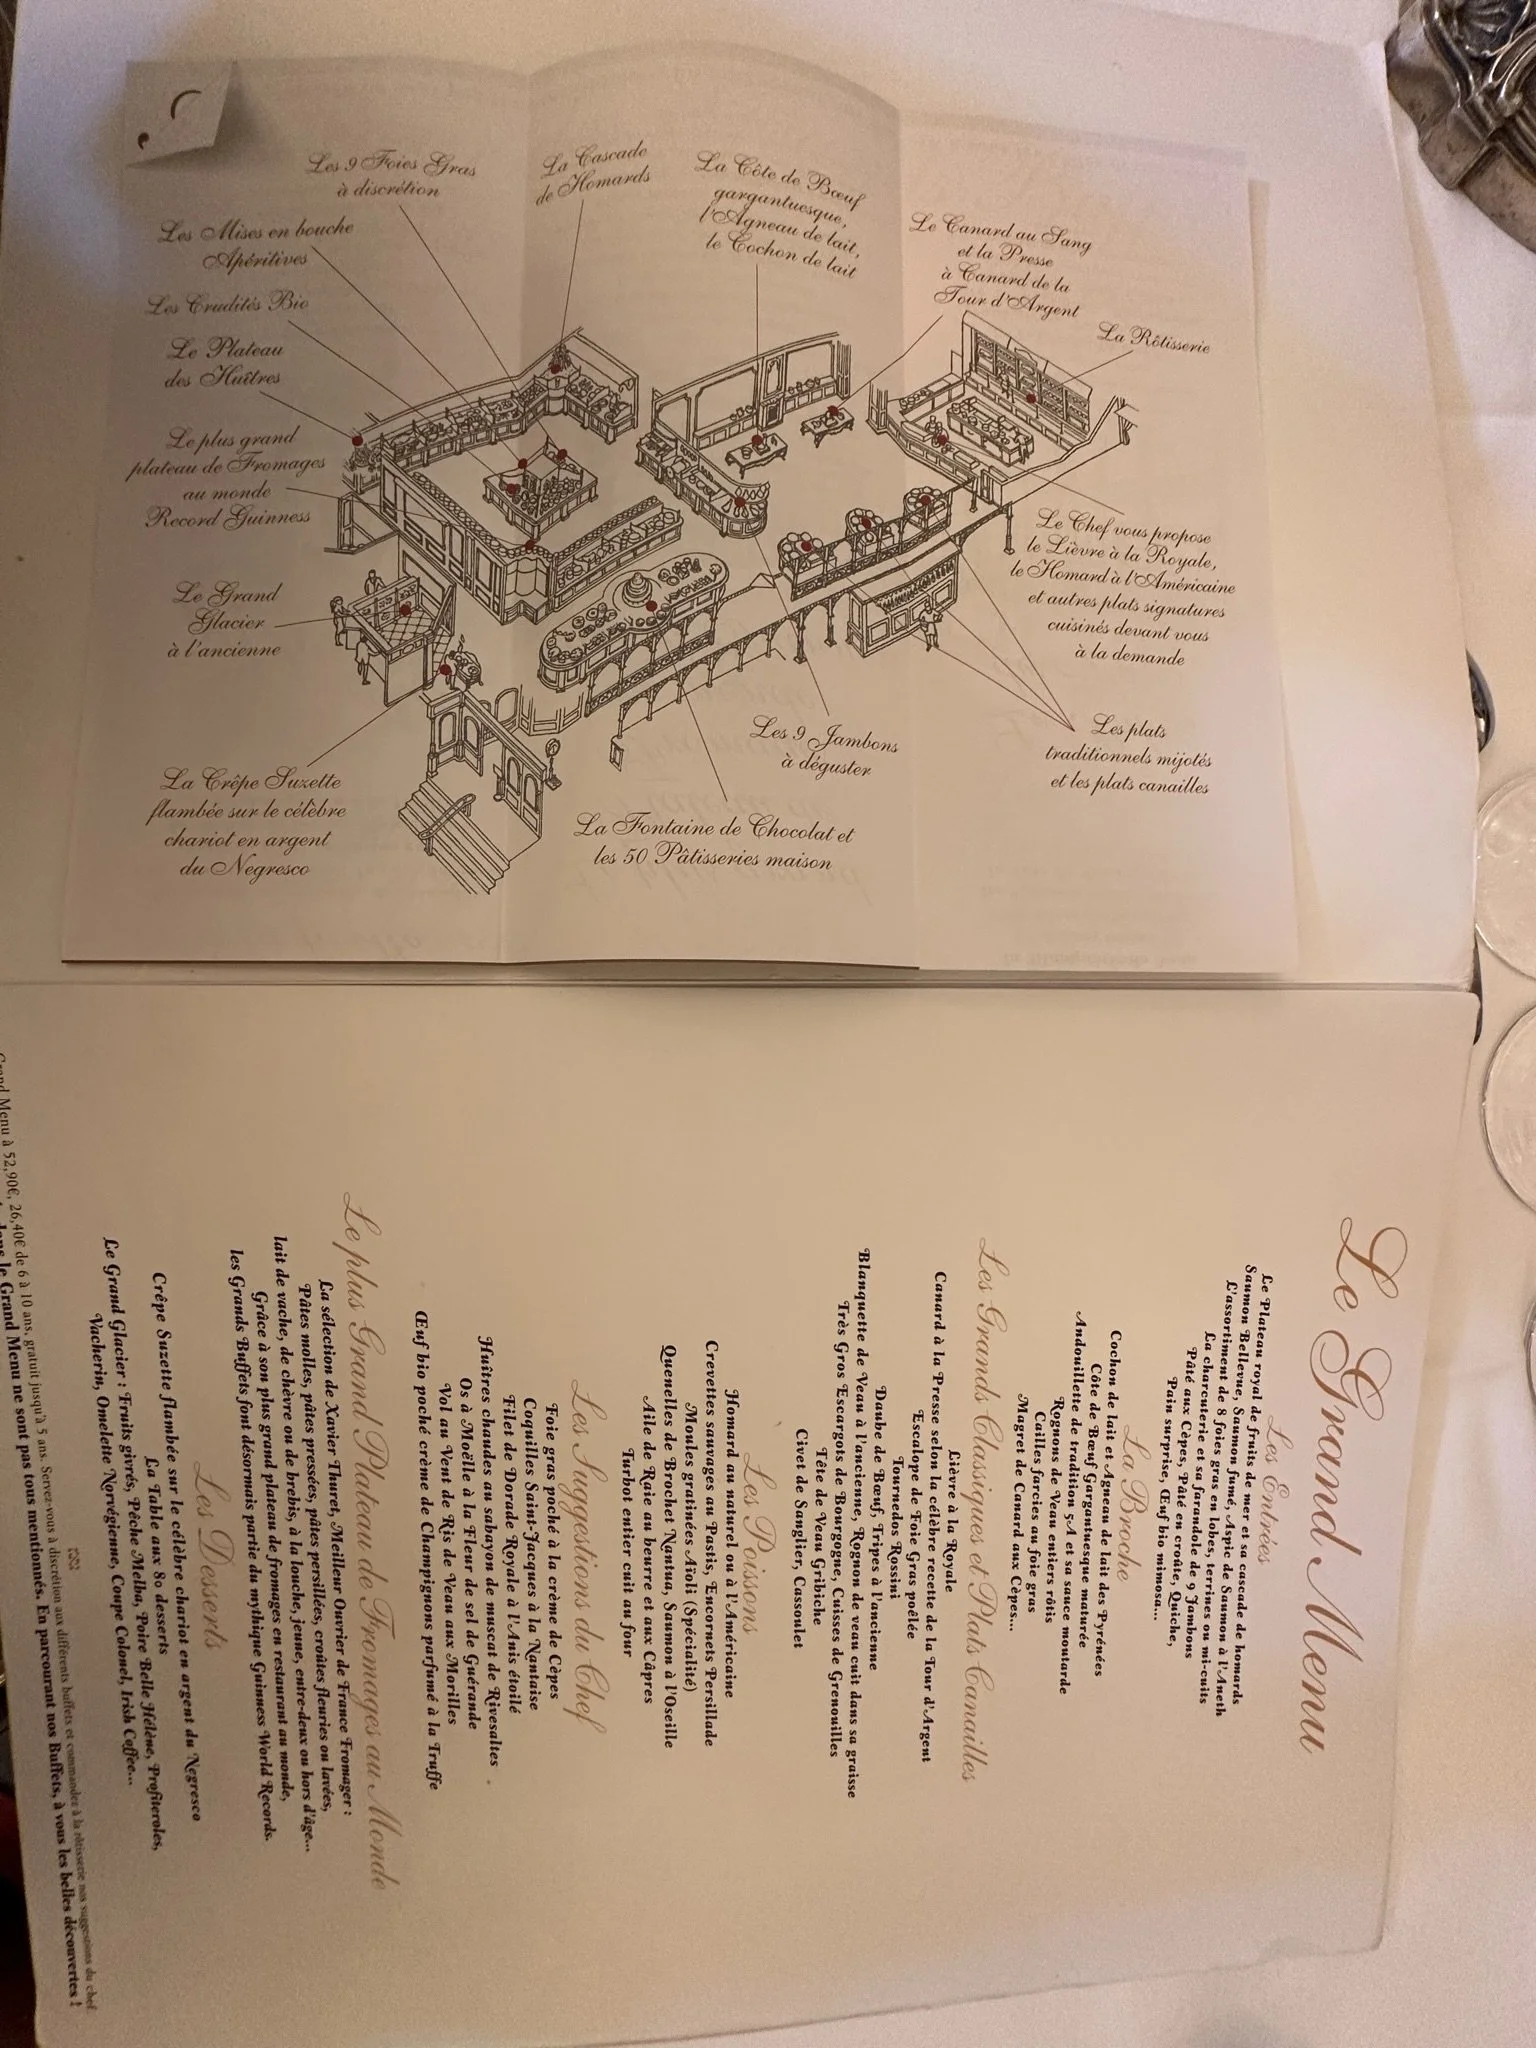 Les 9 Foies Gras
à discrétion
La Cascade
de Homards
La Côte de Bœuf
gargantuesque,
l'Agneau de lait,
le Cochon de lait
Le Canard au Sang
et la Presse
à Canard de la
Tour d'Argent
La Rôtisserie
Les Mises en bouche
Apéritives
Les Crudités Bio
Le Plateau
des Huîtres
Le plus grand
plateau de Fromages
au monde
Record Guinness
Le Grand
Glacier
à l'ancienne
La Crêpe Suzette
flambée sur le célèbre
chariot en argent
du Negresco
La Fontaine de Chocolat et
les 50 Pâtisseries maison
Les 9 Jambons
à déguster
Le Chef vous propose
le Lièvre à la Royale,
le Homard à l'Américaine
et autres plats signatures
cuisinés devant vous
à la demande
Les plats
traditionnels mijotés
et les plats canailles
Le Grand Menu
Les Entrées
Le Plateau royal de fruits de mer et sa cascade de homards
Saumon Bellevue, Saumon fumé, Aspic de Saumon à l'Aneth
L'assortiment de 9 foies gras en lobes, terrines ou mi-cuits
La charcuterie et sa farandole de 9 Jambons
Pâté aux Cèpes, Pâté en croûte, Quiche,
Pain surprise, Œuf bio mimosa...
La Broche
Cochon de lait et Agneau de lait des Pyrénées
Côte de Bœuf Gargantuesque maturée
Andouillette de tradition 5A et sa sauce moutarde
Rognons de Veau entiers rôtis
Cailles farcies au foie gras
Magret de Canard aux Cèpes...
Les Grands Classiques et Plats Canailles
Lièvre à la Royale
Canard à la Presse selon la célèbre recette de la Tour d'Argent
Escalope de Foie Gras poêlée
Tournedos Rossini
Daube de Bœuf, Tripes à l'ancienne
Blanquette de Veau à l'ancienne, Rognon de veau cuit dans sa graisse
Très Gros Escargots de Bourgogne, Cuisses de Grenouilles
Tête de Veau Gribiche
Civet de Sanglier, Cassoulet
Les Poissons
Homard au naturel ou à l'Américaine
Crevettes sauvages au Pastis, Encornets Persillade
Moules gratinées Aïoli (Spécialité)
Quenelles de Brochet Nantua, Saumon à l'Oseille
Aile de Raie au beurre et aux Câpres
Turbot entier cuit au four
Les Suggestions du Chef
Foie gras poché à la crème de Cèpes
Coquilles Saint-Jacques à la Nantaise
Filet de Dorade Royale à l'Anis étoilé
Huîtres chaudes au sabayon de muscat de Rivesaltes
Os à Moëlle à la Fleur de sel de Guérande
Vol au Vent de Ris de Veau aux Morilles
Œuf bio poché crème de Champignons parfumé à la Truffe
Le plus Grand Plateau de Fromages au Monde
La sélection de Xavier Thuret, Meilleur Ouvrier de France Fromager :
Pâtes molles, pâtes pressées, pâtes persillées, croûtes fleuries ou lavées,
lait de vache, de chèvre ou de brebis, à la louche, jeune, entre-deux ou hors d'âge...
Grâce à son plus grand plateau de fromages en restaurant au monde,
les Grands Buffets font désormais partie du mythique Guinness World Records.
Les Desserts
Crêpe Suzette flambée sur le célèbre chariot en argent du Negresco
La Table aux 80 desserts
Le Grand Glacier : Fruits givrés, Pêche Melba, Poire Belle Hélène, Profiteroles,
Vacherin, Omelette Norvégienne, Coupe Colonel, Irish Coffee...
Grand Menu à 52,90€, 26,40€ de 6 à 10 ans, gratuit jusqu'à 5 ans. Servez-vous à discrétion aux différents buffets et commandez à la rôtisserie nos suggestions du chef
dans le Grand Menu ne sont pas tous mentionnés. En parcourant nos Buffets, à vous les belles découvertes !